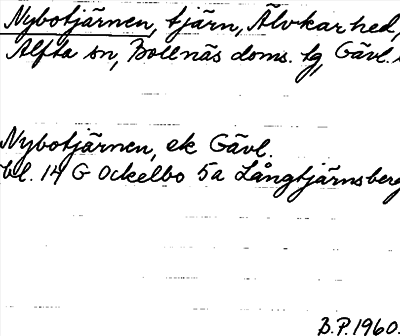 Nybotjärnen, tjärn, Älvkarhed,
Alfta sn, Bollnäs doms. tg, Gävl.
Nybotjärnen, ek Gävl.
bl. 14 G Ockelbo 5a Långtjärnsberg
B.P. 1960.